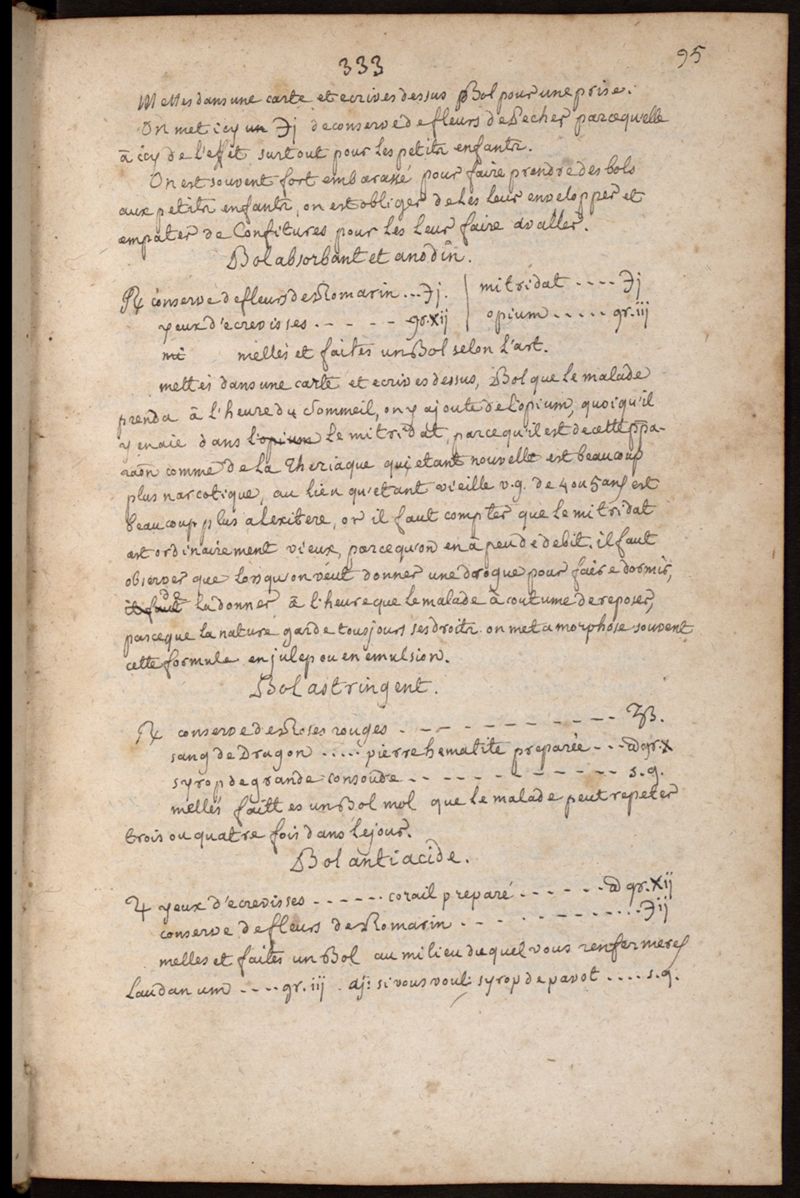 333
95
Mettes dans une carte et ecrives dessus Bol pour une prise.
On met icy un ℈j de conserve de fleurs de Pecher parcequelle
à icy de l'effet surtout pour les petits enfants.
On est souvent fort embarassé pour faire prendre des bols
aux petits enfants, on est obliger de les leur envelopper et
empater de Confitures pour les leur faire avaller.
Bol absorbant et anodin.
℞ conserve de fleurs de Romarin ... ℈j. | mitridat .... ℈j
yeux d'ecrevisses . - - - - gr. xij | opium ..... gr. iij
melles et faites un Bol selon l'art.
mettes dans une carte et ecrives dessus, Bol que le malade
prendra à l'heure du sommeil, on y ajoute de l'opium, quoiqu'il
y en aie dans l'opium le mitridat, parcequ'il est de cette ppa-
raon comme de la Theriaque qui etant nouvelle est beaucoup
plus narcotique, au lieu qu'etant vieille v.g. de 4 ou 5 ans est
beaucoup plus alexitere, or il faut compter que le mitridat
est ordinairement vieux, parcequ'on en à peu de debit. il faut
observer que lorsqu'on veut donner une drogue pour faire dormir,
il faut de la donner à l'heure que le malade à coutume de reposer,
parceque la nature garde tousjours ses droits. on metamorphose souvent
cette formule en julep ou en emulsion.
Bol astringent.
℞ conserve de Roses rouges . - - - - - - - - - ʒß.
sang de Dragon ..... pierre hematite preparée - - - ā gr. x
syrop de grande consoude . - - - - - - - - - s.q.
melles faittes un Bol mol que le malade peut repeter
trois ou quatre fois dans le jour.
Bol antiacide.
♃ yeux d'ecrevisses - - - - - - corail preparé - - - - - - ā gr. xij
conserve de fleurs de Romarin - - - - - - - - - - ℈ij
melles et faites un Bol au milieu duquel vous renfermeres
Laudanum - - - - gr. iij . aj: si vous voul: syrop de pavot .... s.q.